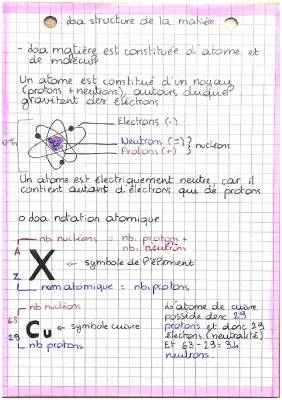 La structure de la matière
- La matière est constituée d'atome et
de molécule
Un atome est constitué d'un noyau
(protons + neutrons), autours duquel
gravitent des électrons
Electrons (-)
Neutrons (=)
Protons (+)
nucléons
Un atome est électriquement neutre, car il
contient autant d'électrons que de protons
o La notation atomique
nb. nucléons = nb. protons +
nb. neutrons
A
X ← symbole de l'élement
Z
nom atomique = nb. protons
nb nucléons
63
Cu ← symbole cuivre
29
nb protons
L'atome de cuivre
possède donc 29
protons et donc 29
électrons (neutralité)
Et 63-29 = 34
neutrons.